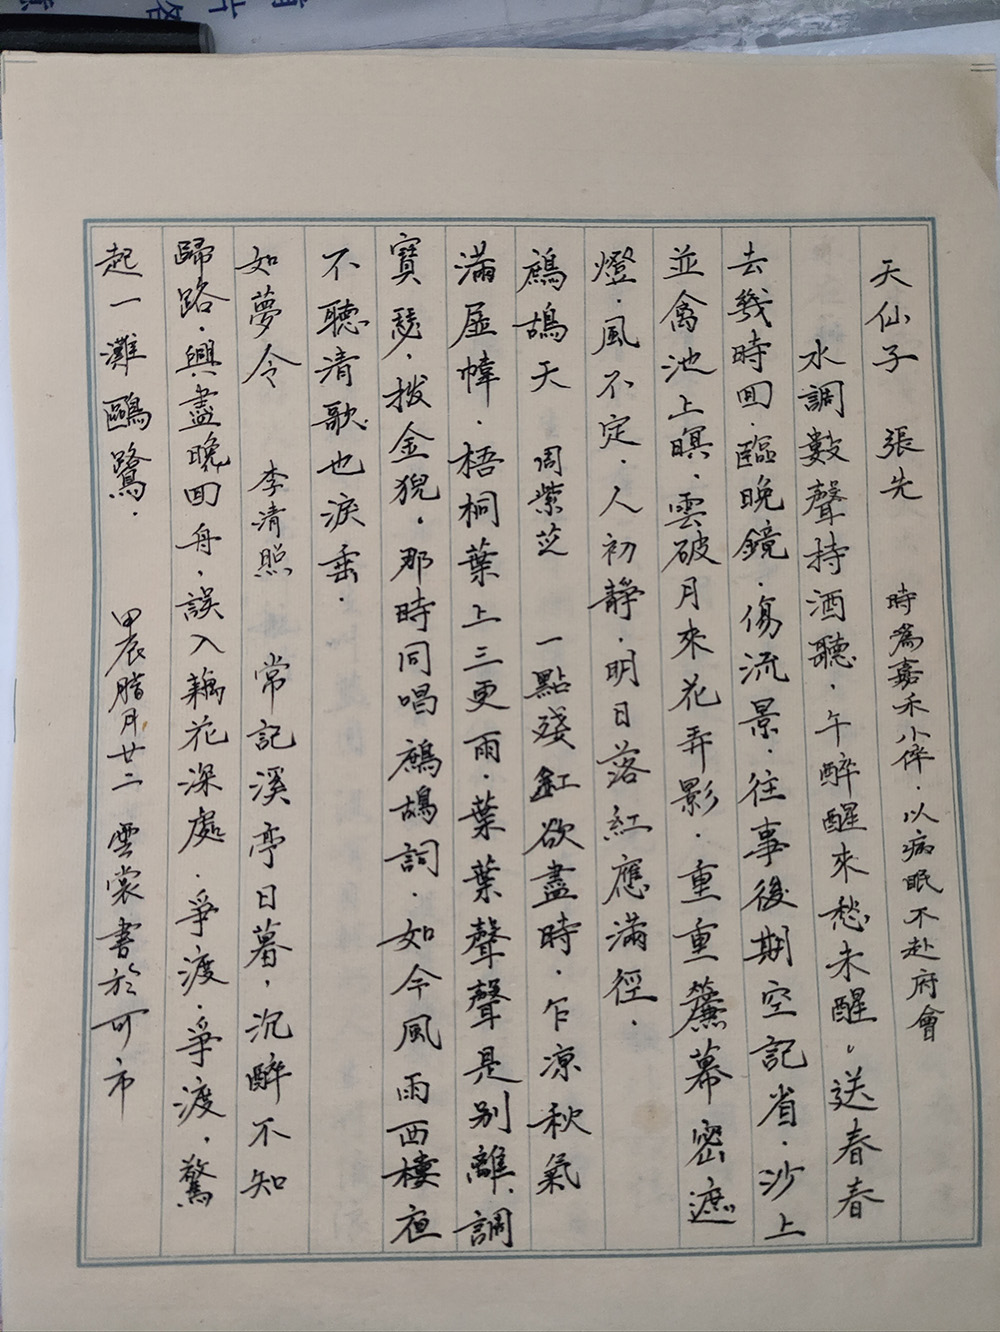 天仙子 張先 時為嘉禾小倅．以病眠不赴府會
水調數聲持酒聽．午醉醒來愁未醒．送春春
去幾時回．臨晚鏡．傷流景．往事後期空記省．沙上
並禽池上暝．雲破月來花弄影．重重簾幕密遮
燈．風不定．人初静．明日落紅應滿徑．
鷓鴣天 周紫芝 一點殘釭欲盡時．乍凉秋氣
滿屏幃．梧桐葉上三更雨．葉葉聲聲是別離．調
寶瑟．撥金猊．那時同唱鷓鴣詞．如今風雨西樓夜
不聽清歌也淚垂．
如夢令 李清照 常記溪亭日暮．沉醉不知
歸路．興盡晚回舟．誤入藕花深處．爭渡．爭渡．驚
起一灘鷗鷺． 甲辰腊月廿二 雲裳書於可市